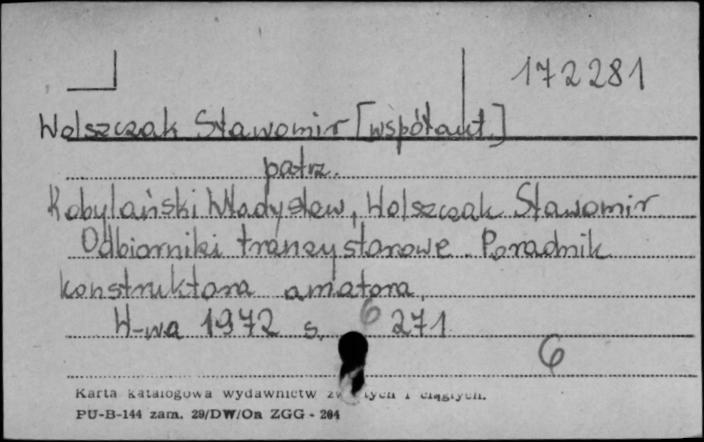 172281
Wolszczak Sławomir [współaut.]
patrz.
Kobylański Władysław, Wolszczak Sławomir
Odbiorniki tranzystorowe. Poradnik
konstruktora amatora.
W-wa 1972 s. 6 271
6
Karta katalogowa wydawnictw i ciągłych.
PU-B-144 zam. 29/DW/On ZGG - 204